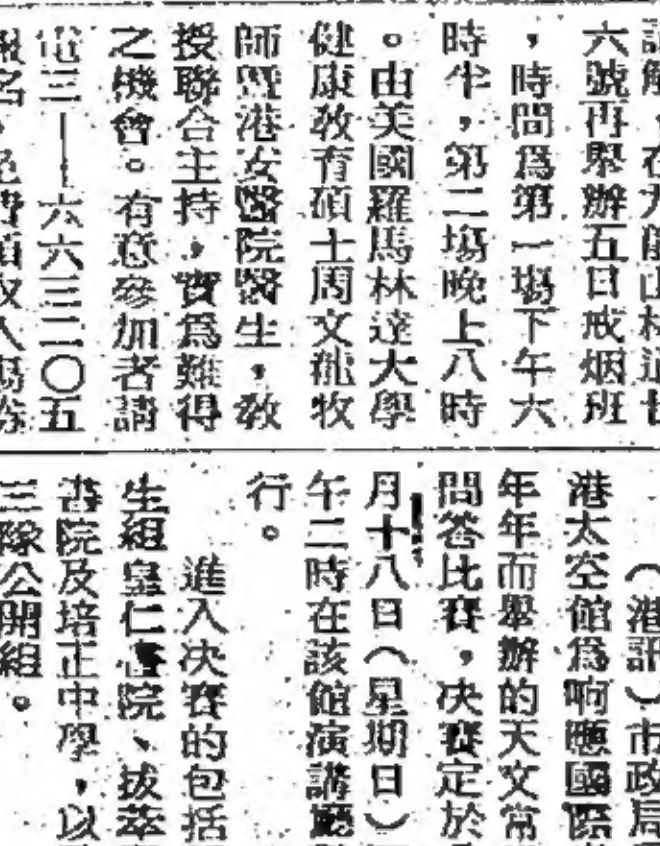 六號再舉辦五日戒烟班
，時間爲第一場下午六
時半，第二場晚上八時
。由美國羅馬林達大學
健康敎育碩士周文龍牧
師暨港安醫院醫生，敎
授聯合主持，實爲難得
之機會。有意參加者請
電三——六六三二〇五
（港訊）市政局
港太空館爲响應國際
年年而舉辦的天文常
問答比賽，决賽定於
月十八日（星期日）
午二時在該館演講廳
行。
進入决賽的包括
生組皇仁書院、拔萃
書院及培正中學，以
三隊公開組。